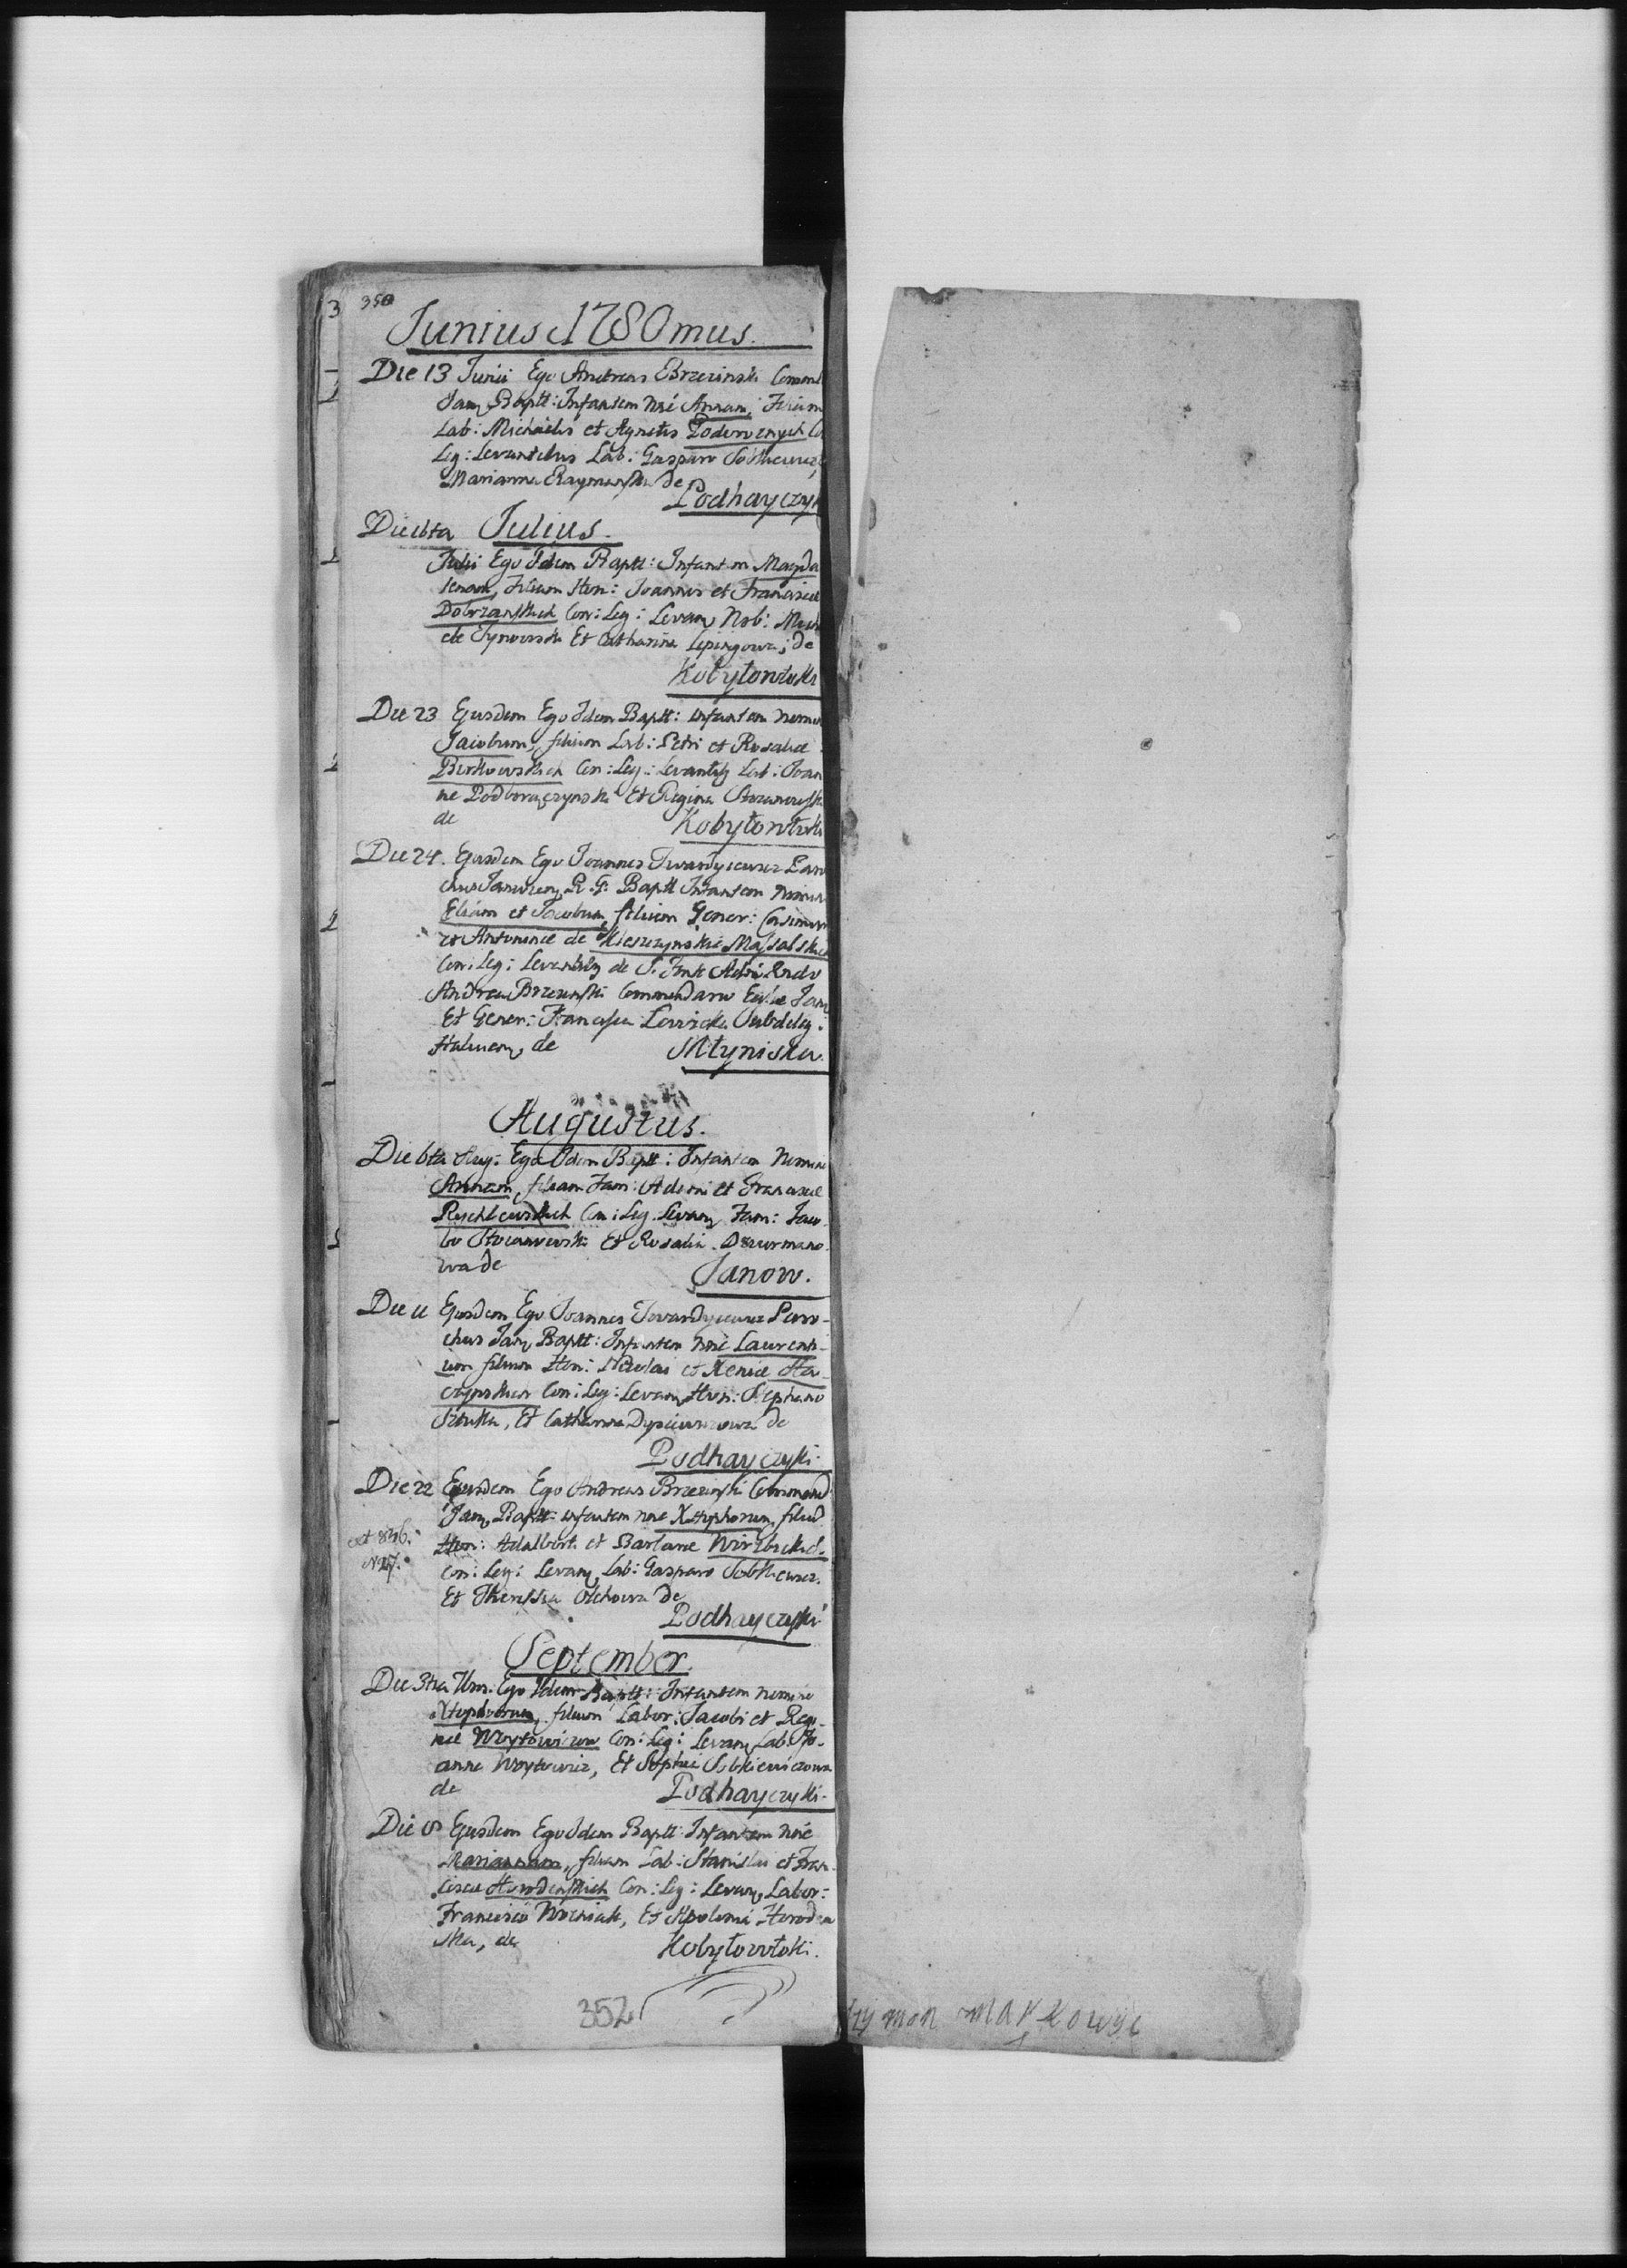 3 350
Junius 1780mus.
Die 13 Junii Ego Andreas Brzezinski Commend
Jan, Baptt: Infantem nné Annam, Filiam
Lab: Michaelis et Agnetis Podworznych Co
Leg: Levantibus Lab: Gasparo Sobkiewicz
Marianna Raymanska de
Podhayczyk
Die 16ta Julius.
Julii Ego Idem Baptt: Infantem Magda
lenam, Filiam Hon: Joannis et Franciscæ
Dobrzanskich Con: Leg: Levan, Nob: Mich
ele Tynowski Et Catharina Lipingowa; de
Kobyłowłoki
Die 23 Ejusdem Ego Idem Baptt: Infantem nomine
Jacobum, filium Lab: Petri et Rosaliæ
Birkowskich Con: Leg: Levantib Lab: Joan
ne Podhoraczynski Et Regina
de Kobyłowłoki
Die 24. Ejusdem Ego Joannes Twardyiewicz Paro
chus Janovien, R. G. Baptt Infantem nomine
Eliam et Jacobum, filium Gener: Casimiri
et Antoninæ de Kieszczynskie Massalskich
Con: Leg: Levantib de S. Fonte Adm Rndo
Andrea Brzezinski Commendario Eccl Jano
Et Gener: Francisca Lewicka Subdeleg:
Halicien, de Młyniska.
Augustus.
Die 6ta Aug: Ego Idem Baptt: Infantem Nomine
Annam, filiam Fam: Adami et Franciscæ
Rychlewskich Con: Leg. Levan, Fam: Jaco
bo Stoianowski Et Rosalia Dzurmano
wa de Janow.
Die 11 Ejusdem Ego Joannes Twardyiewicz Paro-
chus Jan, Baptt: Infantem nné Laurenti-
um filium Hon: Nicolai et Xeniæ Ha-
czynskich Con: Leg: Levan, Hon: Stephano
Sztuka, Et Catharina de
Podhayczyki.
Die 22 Ejusdem Ego Andreas Brzezinski Commend:
Jan, Baptt: Infantem nné Xttophorum, filiu
Hon: Adalberti et Barbaræ Wirzbickich.
Con: Leg: Levan, Lab: Gasparo Sobkiewicz.
Et Theressia Olchowa de
Podhayczyki
N 27.
September.
Die 3tia 7bris. Ego Idem Baptt: Infantem nomine
Xttophorum, filium Labor: Jacobi et Regi-
næ Woytowiczow Con: Leg: Levan, Lab: Jo-
anne Woytowicz, Et Sophia Sobkiewiczowa
de Podhayczyki.
Die 8 Ejusdem Ego Idem Baptt: Infantem nné
Mariannam, filiam Lab: Stanislai et Fran-
ciscæ Horodenskich Con: Leg: Levan, Labor:
Francisco Wozniak, Et Apolonia Horoden
ska, de Kobyłowłoki.
352
zymon markowyc